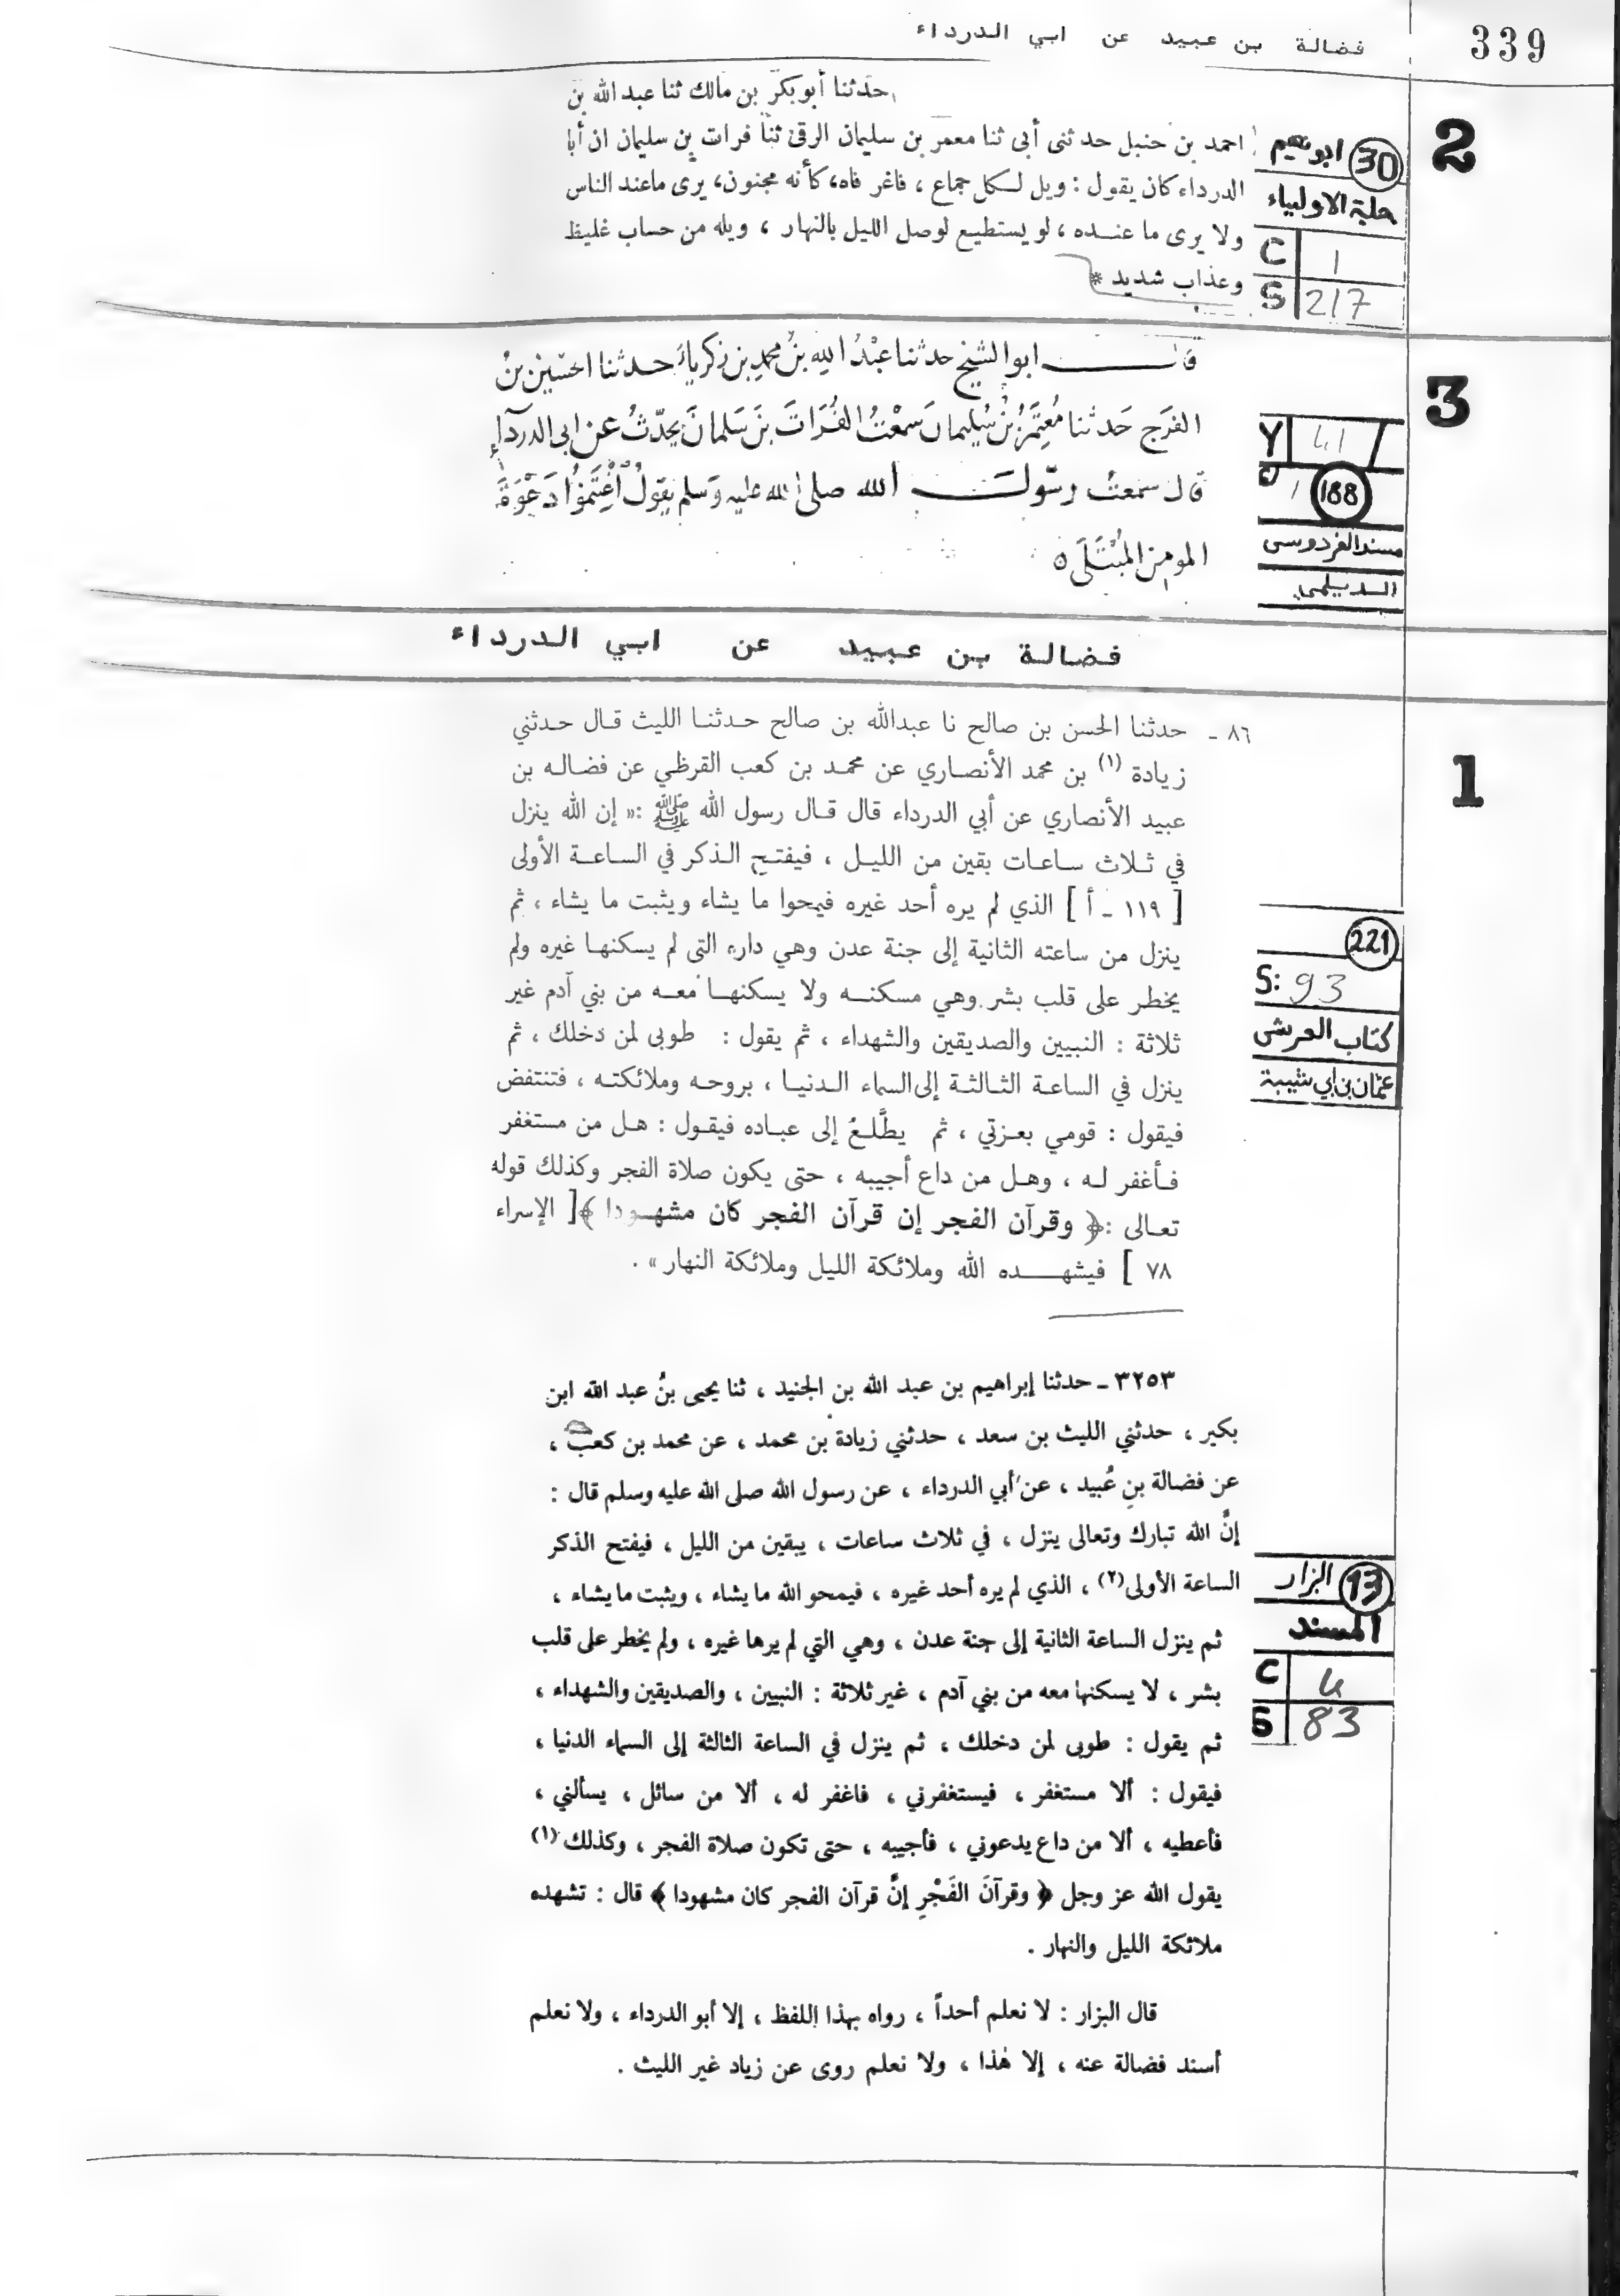 339
فضالة بن عبيد عن ابي الدرداء
2
حدثنا أبو بكر بن مالك ثنا عبد الله بن
احمد بن حنبل حدثنى أبى ثنا معمر بن سليمان الرقى ثنا فرات بن سليمان ان أبا
الدرداء كان يقول : ويل لكل جماع ، فاغر فاه، كأنه مجنون، يرى ما عند الناس
ولا يرى ما عنده ، لو يستطيع لوصل الليل بالنهار ، ويله من حساب غليظ
وعذاب شديد *
30 ابو نعيم
حلية الاولياء
C 1
S 217
3
قال ابو الشيخ حدثنا عَبْدُ اللهِ بنُ محمدِ بنِ زكرياءَ حدثنا الحسين بنُ
الفرَج حَدثنا مُعتَمرُ بنُ سُلَيمانَ سمعْتُ الفُرَاتَ بنَ سَلمانَ يحدّثُ عن ابى الدرداءِ
قال سمعتُ رسُولَ الله صلى الله عليه وَسلم يقولُ اغْتَنِمُوا دَعْوَةَ
المومِنِ المُبْتَلَى ٥
Y 41
188
مسند الفردوسى
الديلمي
فضالة بن عبيد عن ابي الدرداء
1
٨٦ ـ حدثنا الحسن بن صالح نا عبدالله بن صالح حدثنا الليث قال حدثني
زيادة (١) بن محمد الأنصاري عن محمد بن كعب القرظي عن فضاله بن
عبيد الأنصاري عن أبي الدرداء قال قال رسول الله ﷺ :« إن الله ينزل
في ثلاث ساعات بقين من الليل ، فيفتح الذكر في الساعة الأولى
[ ١١٩ ـ أ ] الذي لم يره أحد غيره فيمحوا ما يشاء ويثبت ما يشاء ، ثم
ينزل من ساعته الثانية إلى جنة عدن وهي داره التى لم يسكنها غيره ولم
يخطر على قلب بشر وهي مسكنه ولا يسكنها معه من بني آدم غير
ثلاثة : النبيين والصديقين والشهداء ، ثم يقول : طوبى لمن دخلك ، ثم
ينزل في الساعة الثالثة إلى السماء الدنيا ، بروحه وملائكته ، فتنتفض
فيقول : قومي بعزتي ، ثم يطَّلعُ إلى عباده فيقول : هل من مستغفر
فأغفر له ، وهل من داع أجيبه ، حتى يكون صلاة الفجر وكذلك قوله
تعالى :﴿ وقرآن الفجر إن قرآن الفجر كان مشهودا ﴾[ الإسراء
٧٨ ] فيشهده الله وملائكة الليل وملائكة النهار » .
221
S: 93
كتاب العرشى
عثمان بن ابي شيبة
٣٢٥٣ ـ حدثنا إبراهيم بن عبد الله بن الجنيد ، ثنا يحيى بنُ عبد الله ابن
بكير ، حدثني الليث بن سعد ، حدثني زيادة بن محمد ، عن محمد بن كعب ،
عن فضالة بنِ عُبيد ، عن أبي الدرداء ، عن رسول الله صلى الله عليه وسلم قال :
إنَّ الله تبارك وتعالى ينزل ، في ثلاث ساعات ، يبقين من الليل ، فيفتح الذكر
الساعة الأولى(٢) ، الذي لم يره أحد غيره ، فيمحو الله ما يشاء ، ويثبت ما يشاء ،
ثم ينزل الساعة الثانية إلى جنة عدن ، وهي التي لم يرها غيره ، ولم يخطر على قلب
بشر ، لا يسكنها معه من بني آدم ، غير ثلاثة : النبيين ، والصديقين والشهداء ،
ثم يقول : طوبى لمن دخلك ، ثم ينزل في الساعة الثالثة إلى السماء الدنيا ،
فيقول : ألا مستغفر ، فيستغفرني ، فاغفر له ، ألا من سائل ، يسألني ،
فأعطيه ، ألا من داع يدعوني ، فأجيبه ، حتى تكون صلاة الفجر ، وكذلك (١)
يقول الله عز وجل ﴿ وقرآنَ الفَجْرِ إنَّ قرآن الفجر كان مشهودا ﴾ قال : تشهده
ملائكة الليل والنهار .
13 البزار
المسند
C 4
S 83
قال البزار : لا نعلم أحداً ، رواه بهذا اللفظ ، إلا أبو الدرداء ، ولا نعلم
أسند فضالة عنه ، إلا هٰذا ، ولا نعلم روى عن زياد غير الليث .